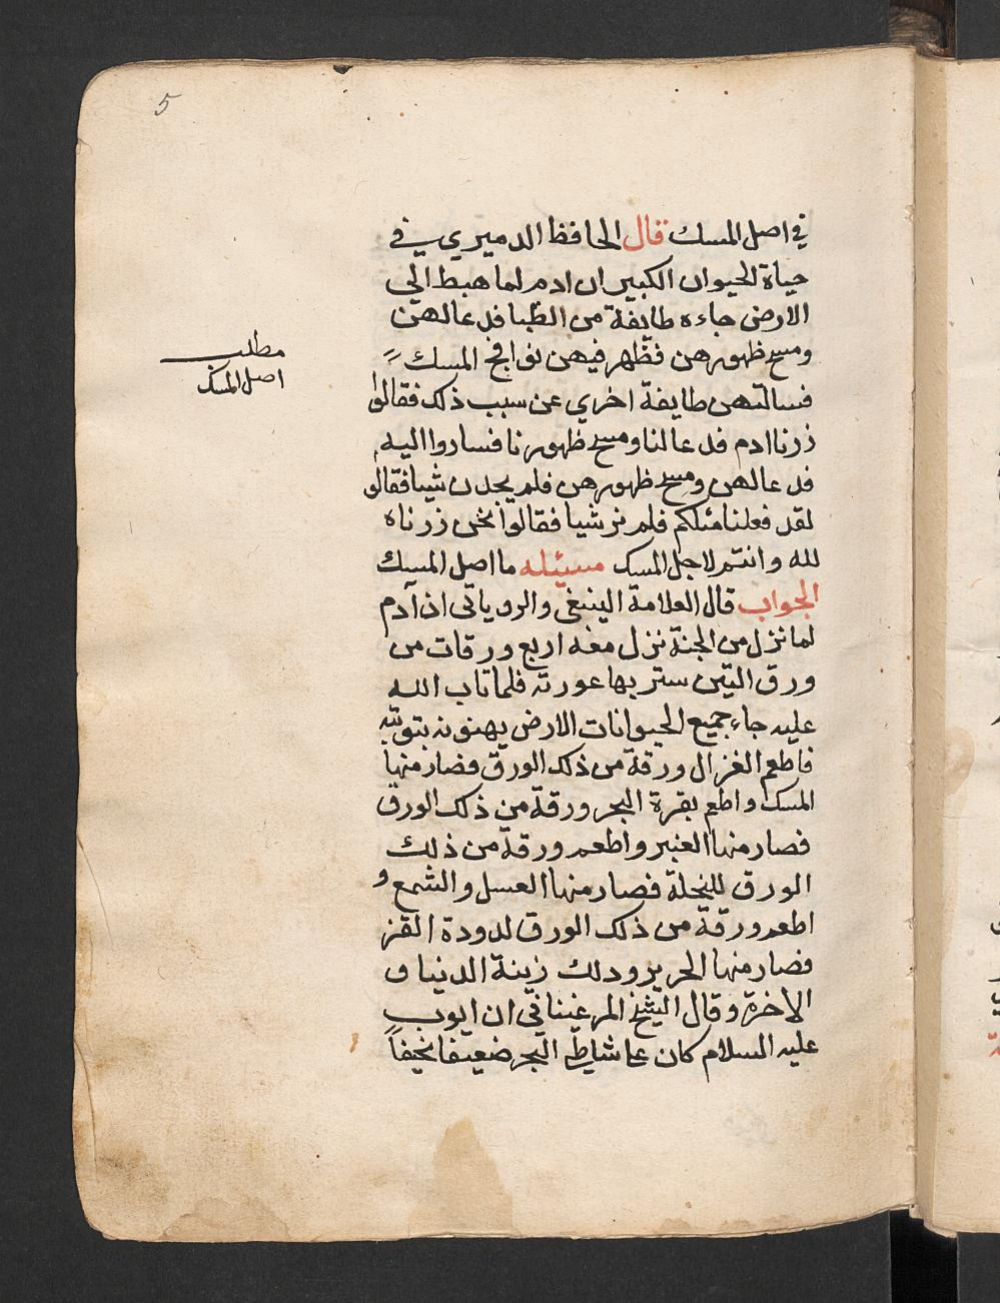 5
في اصل المسك قال الحافظ الدميري في
حياة الحيوان الكبير ان ادم لما هبط الي
الارض جاءه طايفة من الظبا فدعالهن
ومسح ظهورهن فظهر فيهن نوافج المسك
فسالتهن طايفة اخري عن سبب ذلك فقالوا
زرنا ادم فدعا لنا ومسح ظهورنا فساروا اليه
فدعالهن ومسح ظهورهن فلم يجدن شيا فقالو
لقد فعلنا مثلكم فلم نر شيا فقالوا نحن زرناه
لله وانتم لاجل المسك مسيئله ما اصل المسك
الجواب قال العلامة والروياني ان آدم
لما نزل من الجنة نزل معه اربع ورقات من
ورق التين ستر بها عورته فلما تاب الله
عليه جاء جميع الحيوانات الارض يهنونه بتوبته
فاطعم الغزال ورقة من ذلك الورق فصار منها
المسك واطعم بقرة البحر ورقة من ذلك الورق
فصار منها العنبر واطعم ورقة من ذلك
الورق للنحلة فصار منها العسل والشمع و
اطعم ورقة من ذلك الورق لدودة القز
فصار منها الحرير ودلك زينة الدنيا و
الاخرة وقال الشيخ ان ايوب
عليه السلام كان عا شاطي البحر ضعيفا نحيفاً
مطلب
اصل المسك